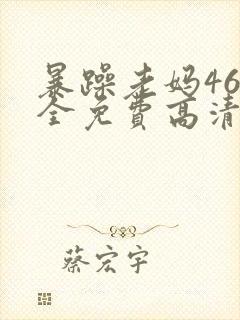 暴躁老妈46
全免费高清
蔡宏宇